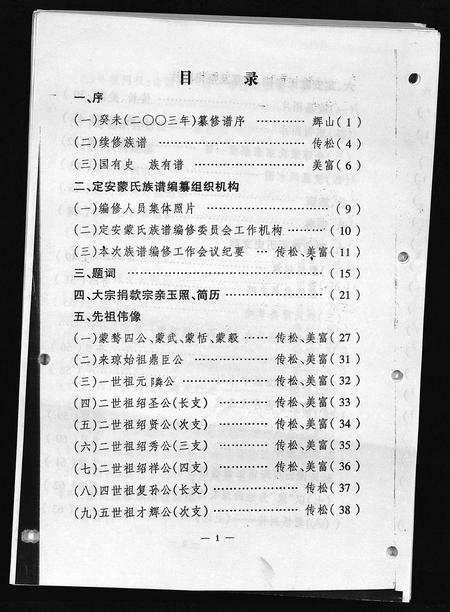 目 录
一、序
(一)癸未(二〇〇三年)纂修谱序 ………… 辉山(1)
(二)续修族谱 ………… 传松(4)
(三)国有史 族有谱 ………… 美富(6)
二、定安蒙氏族谱编纂组织机构
(一)编修人员集体照片 ………… (9)
(二)定安蒙氏族谱编修委员会工作机构 ………… (10)
(三)本次族谱编修工作会议纪要 … 传松、美富(11)
三、题词 ………… (15)
四、大宗捐款宗亲玉照、简历 ………… (21)
五、先祖伟像
(一)蒙骜四公、蒙武、蒙恬、蒙毅 …… 传松、美富(27)
(二)来琼始祖鼎臣公 ………… 传松、美富(31)
(三)一世祖元隣公 ………… 传松、美富(32)
(四)二世祖绍圣公(长支) ………… 传松、美富(33)
(五)二世祖绍贤公(次支) ………… 传松、美富(34)
(六)二世祖绍秀公(三支) ………… 传松、美富(35)
(七)二世祖绍祥公(四支) ………… 传松、美富(36)
(八)四世祖复孙公(长支) ………… 传松(37)
(九)五世祖才辉公(次支) ………… 传松(38)
— 1 —